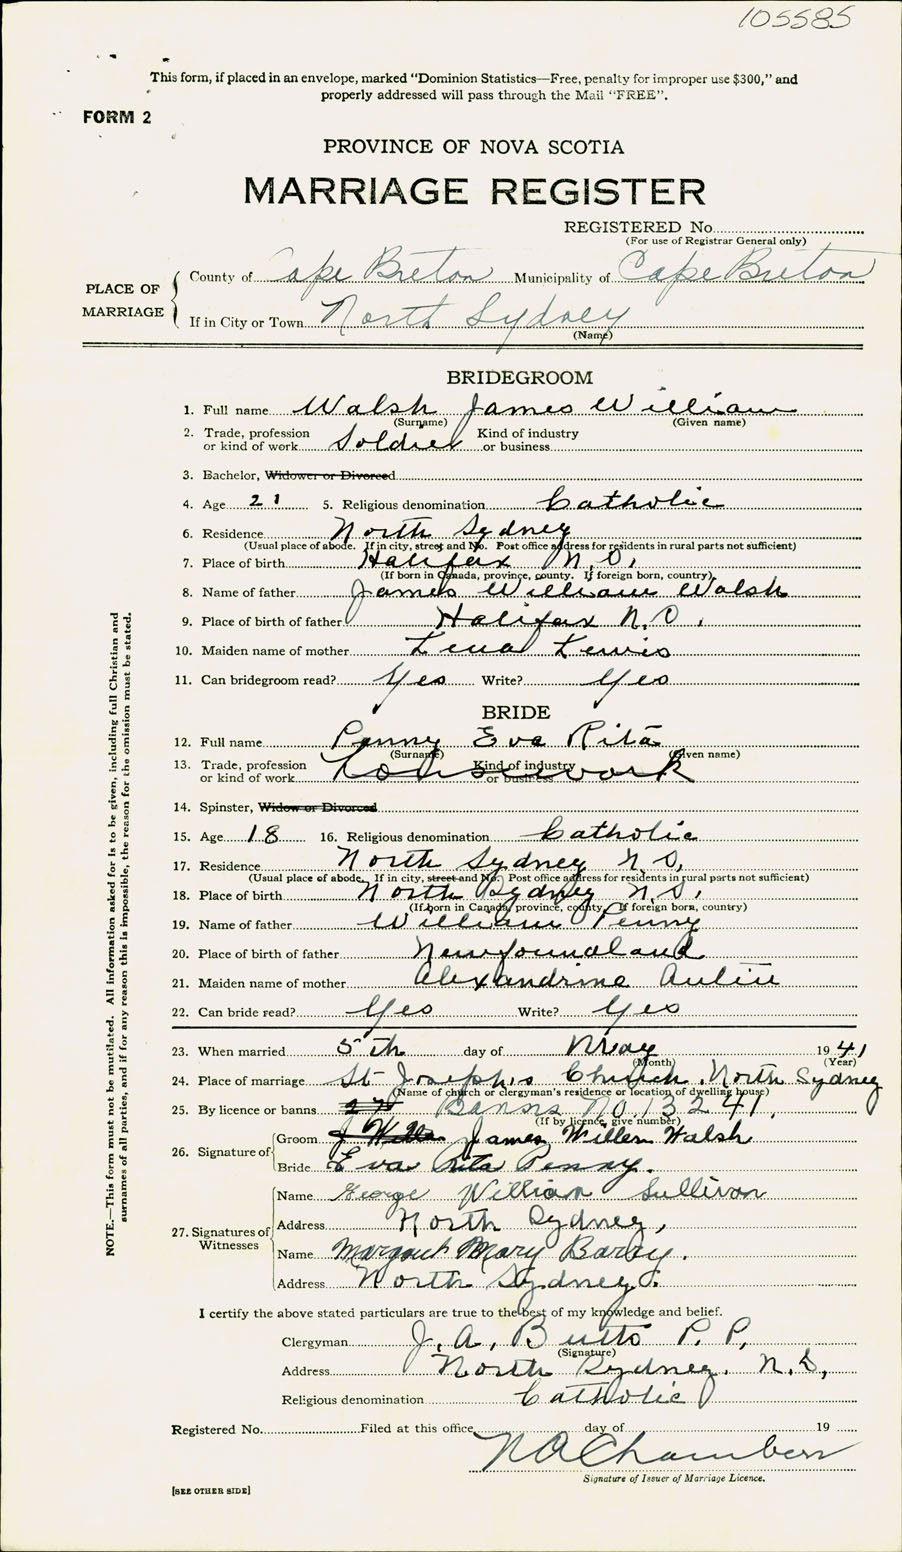 105585
This form, if placed in an envelope, marked "Dominion Statistics—Free, penalty for improper use $300," and
properly addressed will pass through the Mail "FREE".
FORM 2
PROVINCE OF NOVA SCOTIA
MARRIAGE REGISTER
REGISTERED No.
(For use of Registrar General only)
PLACE OF MARRIAGE
County of Cape Breton Municipality of Cape Breton
If in City or Town North Sydney
(Name)
BRIDEGROOM
1. Full name Walsh James William
(Surname) (Given name)
2. Trade, profession or kind of work Soldier Kind of industry or business
3. Bachelor, Widower or Divorced
4. Age 21 5. Religious denomination Catholic
6. Residence North Sydney
(Usual place of abode. If in city, street and No. Post office address for residents in rural parts not sufficient)
7. Place of birth Halifax N.S.
(If born in Canada, province, county. If foreign born, country)
8. Name of father James William Walsh
9. Place of birth of father Halifax N.S.
10. Maiden name of mother Lena Lewis
11. Can bridegroom read? Yes Write? Yes
BRIDE
12. Full name Penny Eva Rita
(Surname) (Given name)
13. Trade, profession or kind of work Housework Kind of industry or business
14. Spinster, Widow or Divorced
15. Age 18 16. Religious denomination Catholic
17. Residence North Sydney N.S.
(Usual place of abode. If in city, street and No. Post office address for residents in rural parts not sufficient)
18. Place of birth North Sydney N.S.
(If born in Canada, province, county. If foreign born, country)
19. Name of father William Penny
20. Place of birth of father Newfoundland
21. Maiden name of mother Alexandrine
22. Can bride read? Yes Write? Yes
23. When married 5th day of May 1941
(Month) (Year)
24. Place of marriage St Joseph's Church, North Sydney
(Name of church or clergyman's residence or location of dwelling house)
25. By licence or banns Banns No. 13241
(If by licence, give number)
26. Signature of
Groom James Walsh
Bride Eva Rita Penny.
27. Signatures of Witnesses
Name George William Sullivan
Address North Sydney,
Name Margaret Mary
Address North Sydney.
I certify the above stated particulars are true to the best of my knowledge and belief.
Clergyman J. A. Butts P. P.
(Signature)
Address North Sydney. N.S,
Religious denomination Catholic
Registered No. Filed at this office day of 19
Chambers
Signature of Issuer of Marriage Licence.
[SEE OTHER SIDE]
NOTE.—This form must not be mutilated. All information asked for is to be given, including full Christian and
surnames of all parties, and if for any reason this is impossible, the reason for the omission must be stated.